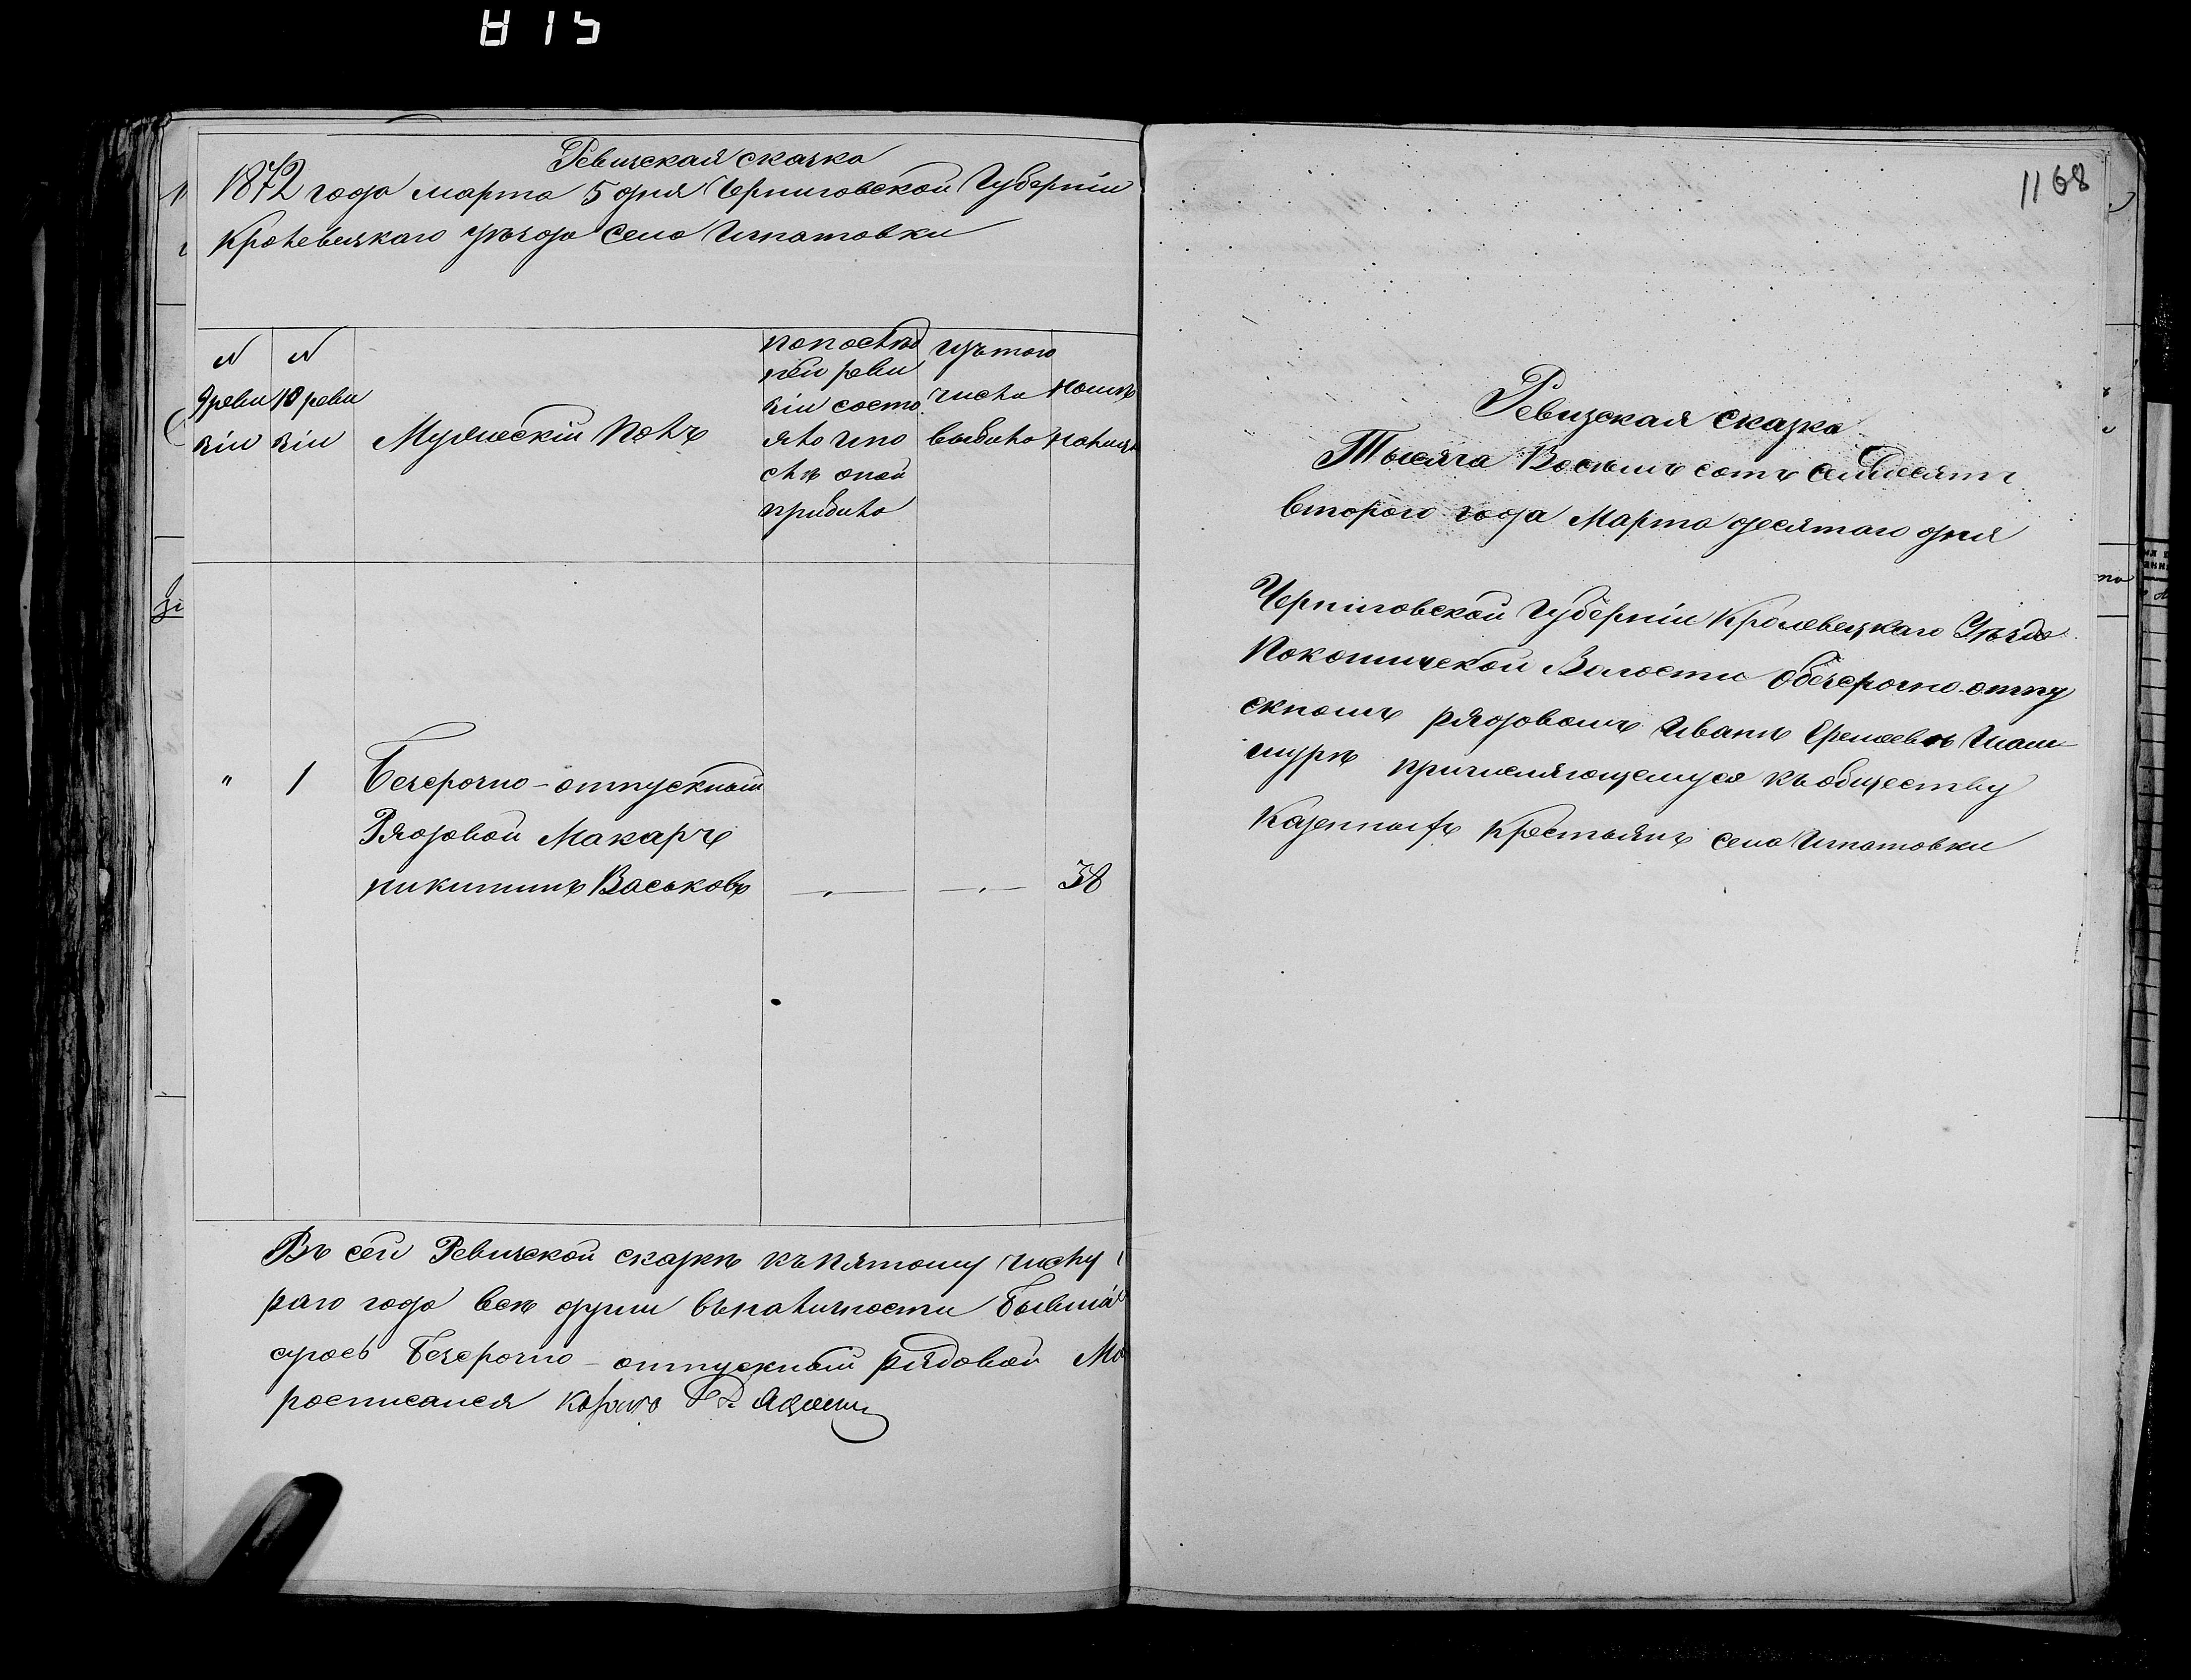 815
Ревизская сказка
1872 года марта 5 дня Черниговской Губерніи
Кролевецкаго уѣзда Села Игнатовки
N
9 реви
зіи
N
10 реви
зіи
Мужескій Полъ
по послѣд
ней реви
зіи состо
яло и по
слѣ оной
прибыло
изъ того
числа
выбыло
"
1
Безсрочно-отпускный
Рядовой Макаръ
Никитинъ Васьковъ
38
Въ сей Ревизской сказкѣ къ пятому числу
раго года всѣ души въ наличности
Безсрочно-отпускный рядовой Ма
росписался
1168
Ревизская сказка
Тысяча Восемь сотъ семдесятъ
втораго года Марта десятаго дня
Черниговской Губерніи Кролевецкаго Уѣзда
Покошичской Волости о безсрочно-отпу
скномъ рядовомъ Иванѣ Еремеевѣ
причисляющемуся къ обществу
Казенныхъ Крестьянъ села Игнатовки